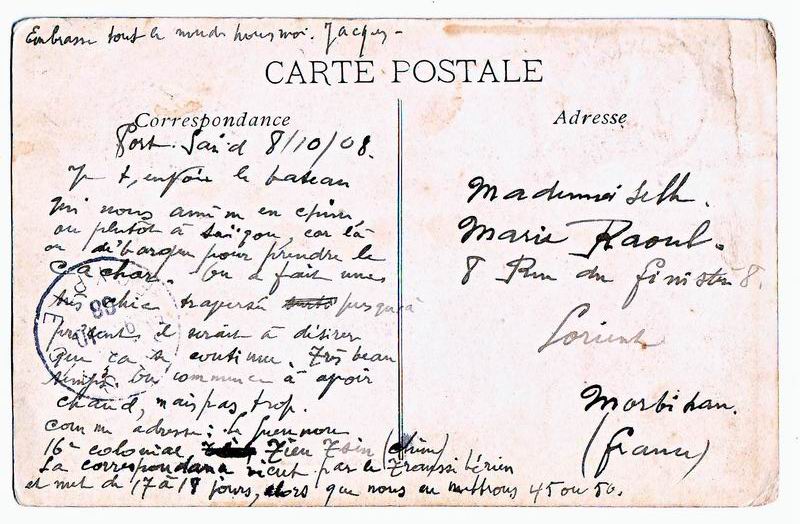 Embrasse tout le monde pour moi. Jacques -
CARTE POSTALE
Correspondance
Port-Saïd 8/10/08.
Je t'envoie le bateau
qui nous amène en chine,
ou plutôt à Saïgon, car là
on débarque pour prendre le
Cachar. On a fait une
très chic traversée jusqu'à
présent, il serait à désirer
que ça se continue. Très beau
temps. On commence à avoir
chaud, mais pas trop.
comme adresse: le
16e coloniale Tien Tsin (chine)
La correspondance vient par le Transsibérien
et met de 17 à 18 jours, alors que nous en mettrons 45 ou 50.
Adresse
Mademoiselle.
Marie Raoul.
8 Rue du finistère 8.
Lorient
Morbihan.
(france)